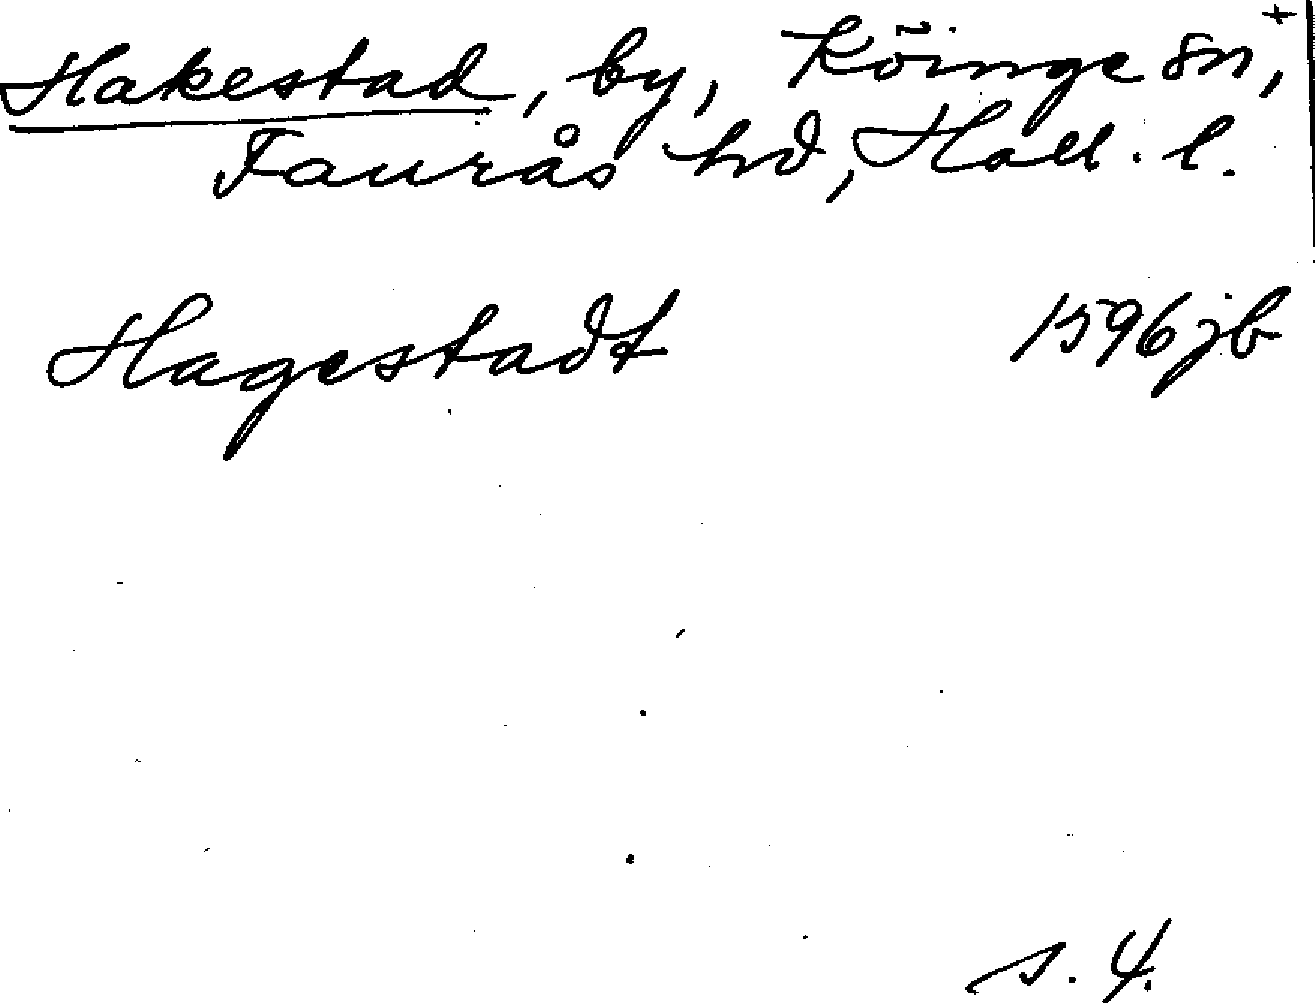 Hakestad, by, Köinge sn, +
Faurås hd, Hall. l.
Hagestadt 1596 jb
s. 4.